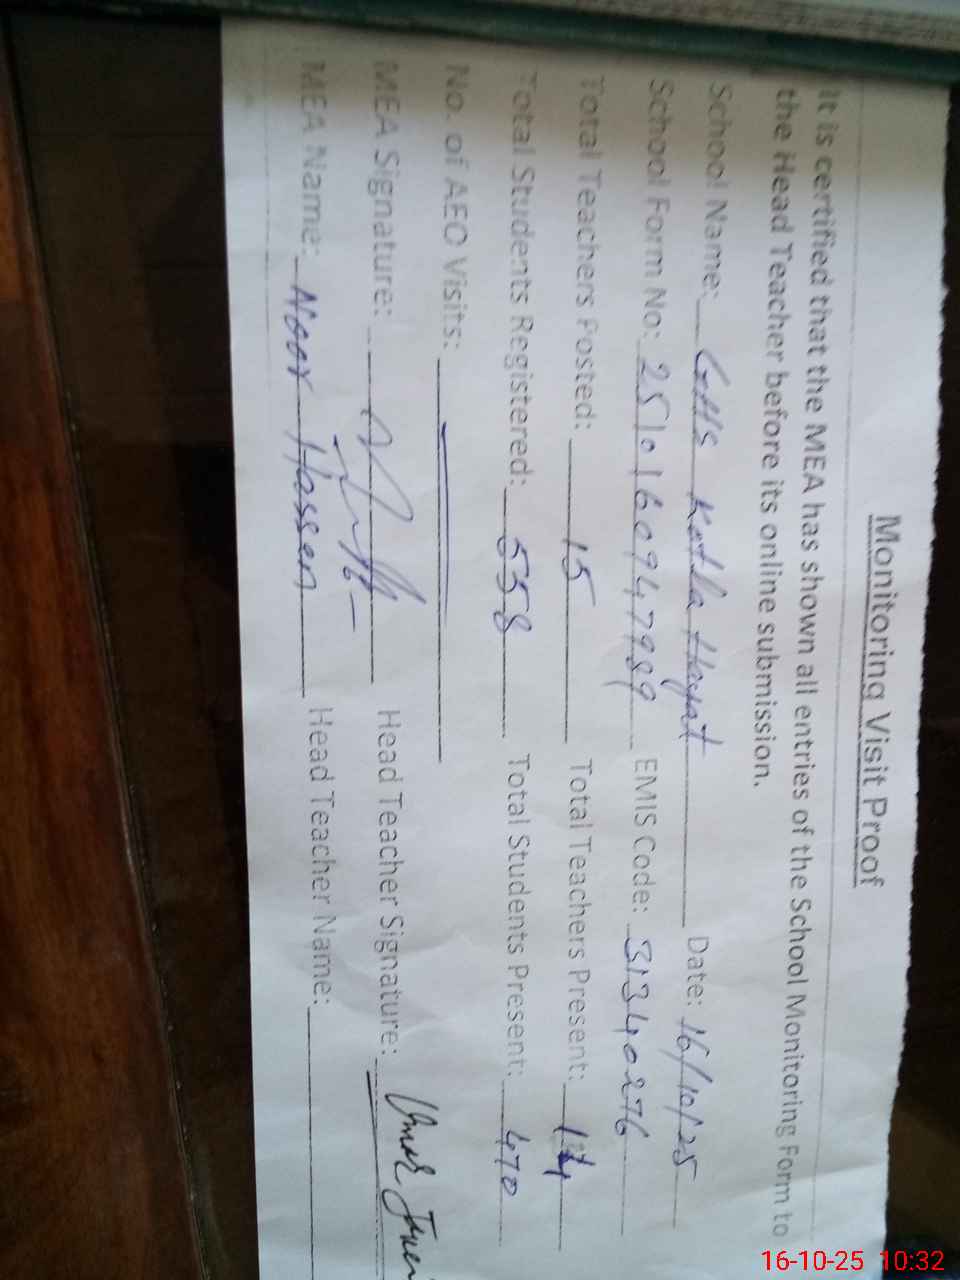 Monitoring Visit Proof
It is certified that the MEA has shown all entries of the School Monitoring Form to
the Head Teacher before its online submission.
School Name: GHS Kotla Hayat Date: 16/10/25
School Form No: 2510160947989 EMIS Code: 31340276
Total Teachers Posted: 15 Total Teachers Present: 14
Total Students Registered: 558 Total Students Present: 470
No. of AEO Visits:
MEA Signature: Head Teacher Signature: Umar
MEA Name: Noor Hassan Head Teacher Name:
16-10-25 10:32